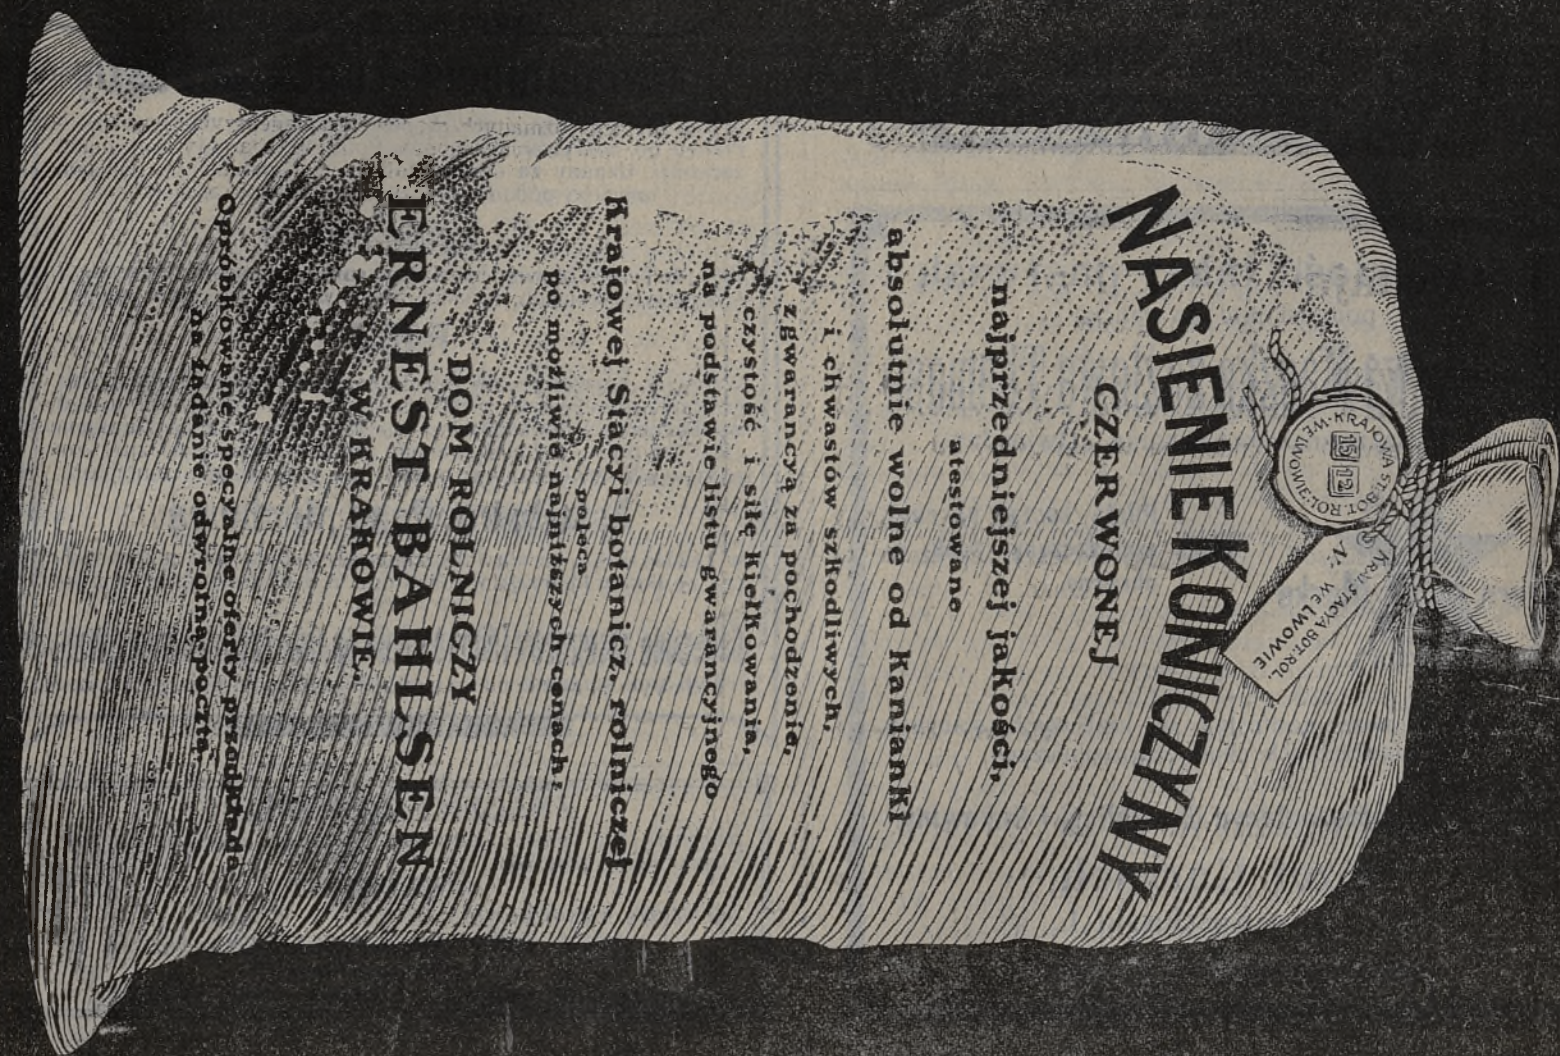 KRAJOWA ST. BOT. ROL. WE LWOWIE
15 12
KRAJ. STACYA BOT. ROL.
Nr. WE LWOWIE
NASIENIE KONICZYNY
CZERWONEJ
najprzedniejszej jakości,
atestowane
absolutnie wolne od kanianki
i chwastów szkodliwych,
z gwarancyą za pochodzenie,
czystość i siłę kiełkowania,
na podstawie listu gwarancyjnego
Krajowej Stacyi botanicz. rolniczej
poleca
po możliwie najniższych cenach:
DOM ROLNICZY
ERNEST BAHLSEN
W KRAKOWIE.
Opróbkowane specyalne oferty przedkłada
na żądanie odwrotną pocztą.